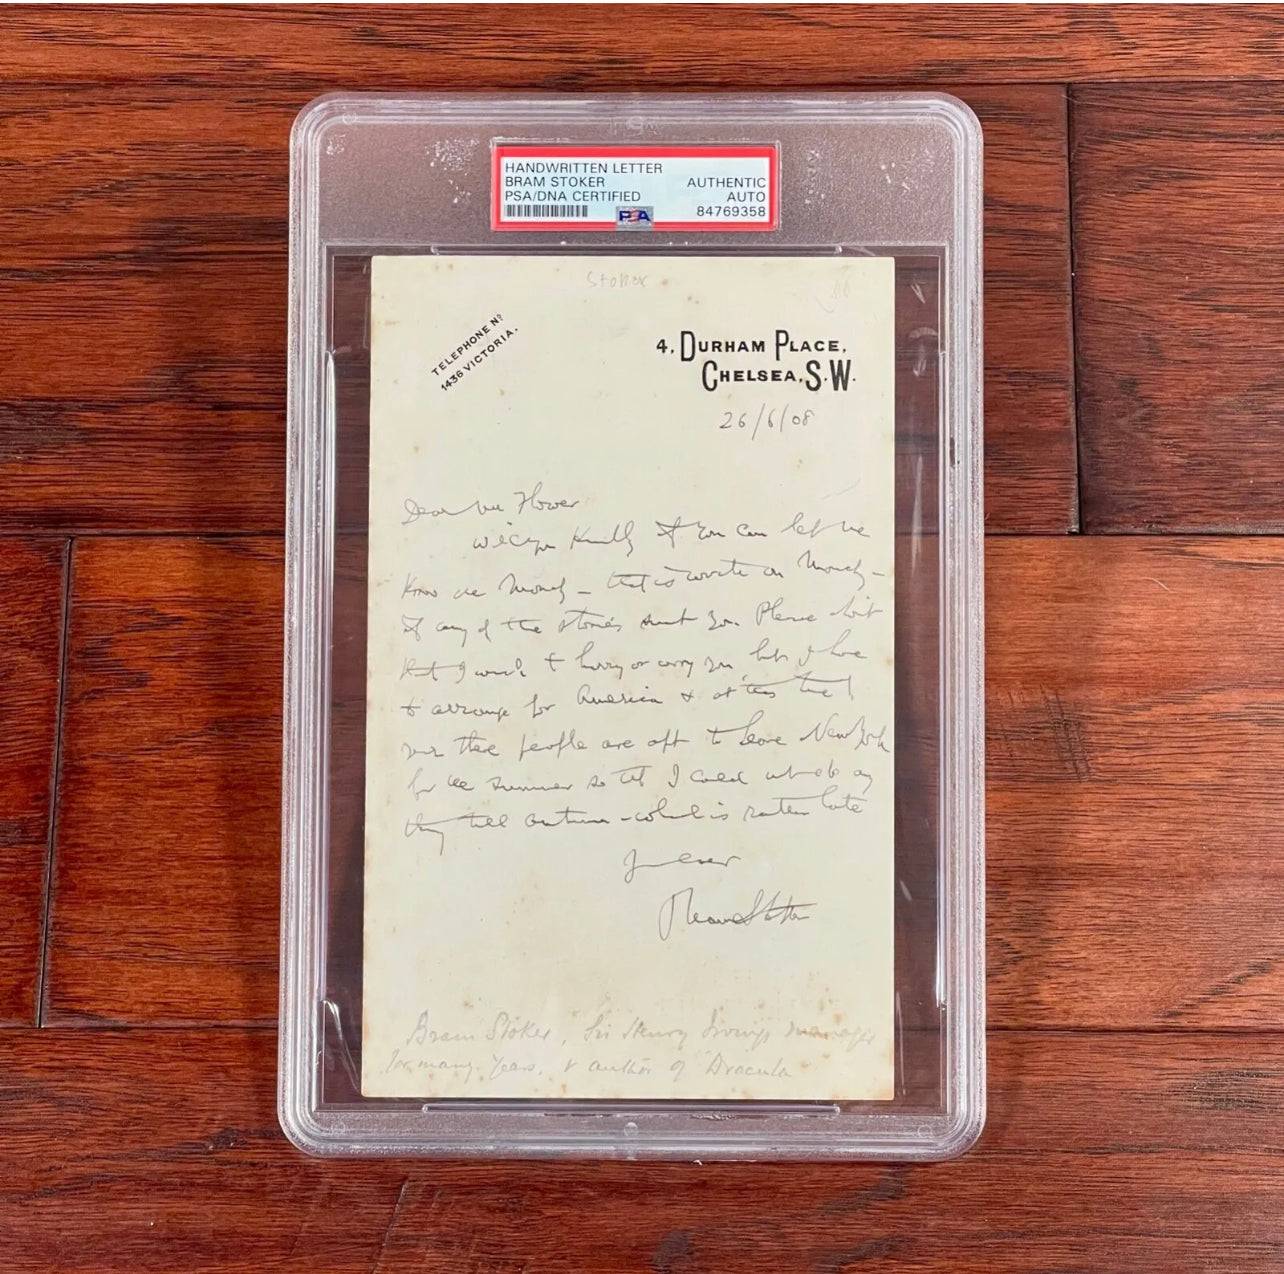 HANDWRITTEN LETTER
BRAM STOKER AUTHENTIC
PSA/DNA CERTIFIED AUTO
PSA 84769358
Stoker
TELEPHONE Nº
1436 VICTORIA.
4, DURHAM PLACE,
CHELSEA, S.W.
26/6/08
Dear Mr Flower
Will you kindly if you can let me
know on Monday – that is write on Monday –
if any of the stories suit you. Please don't
that I wish to hurry or worry you, but I have
to arrange for America & at this time
over there people are apt to leave New York
for the summer so that I could not do any
thing till autumn – which is rather late
Yours ever
Bram Stoker
Bram Stoker, Sir Henry Irving's manager
for many years, & author of "Dracula